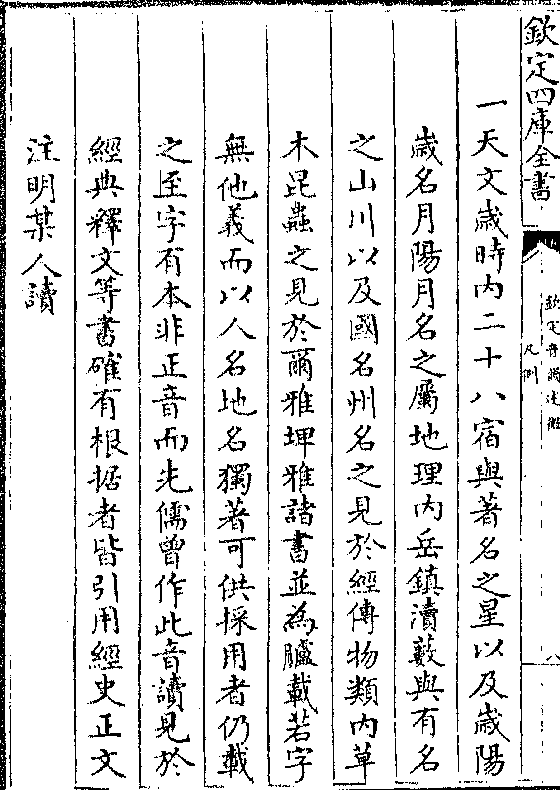 欽定四庫全書
欽定音韻述微
凡例
八
一天文歲時內二十八宿與著名之星以及歲陽
歲名月陽月名之屬地理內岳鎮瀆藪與有名
之山川以及國名州名之見於經傳物類內草
木昆蟲之見於爾雅埤雅諸書並為臚載若字
無他義而以人名地名獨著可供採用者仍載
之至字有本非正音而先儒曾作此音讀見於
經典釋文等書確有根据者皆引用經史正文
注明某人讀